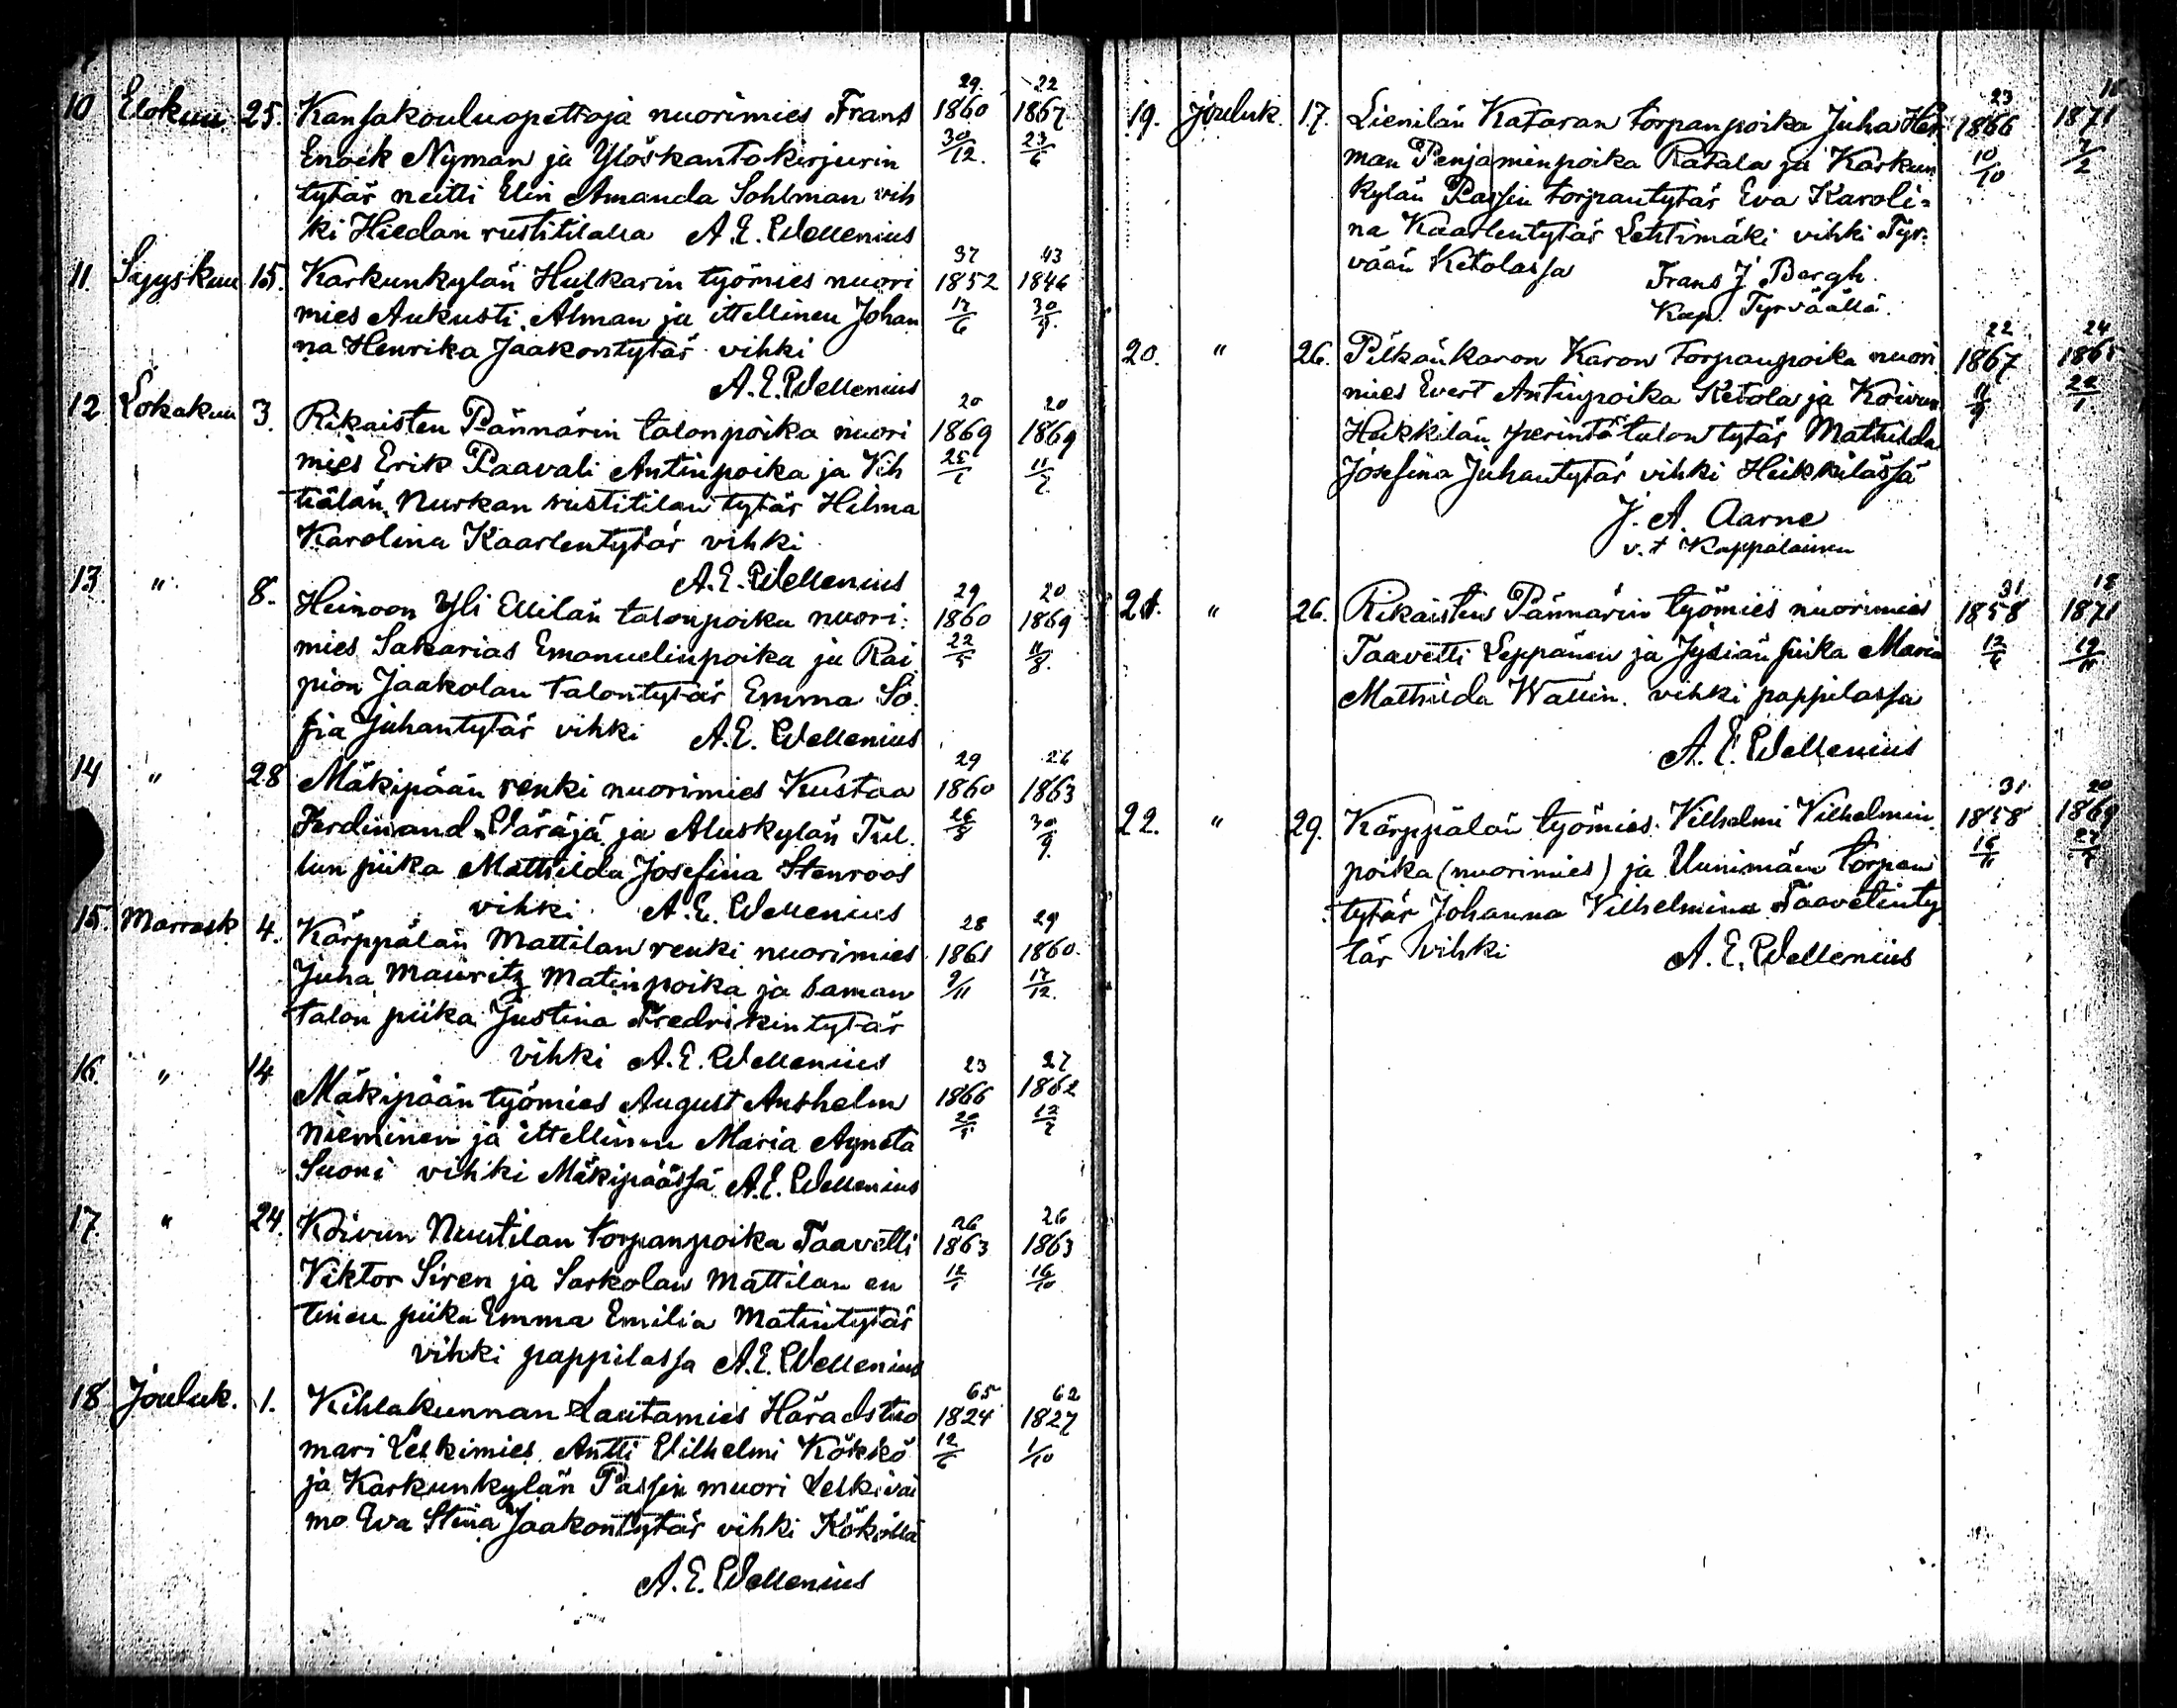 29. 22
10 Elokuu 25. Kansakouluopettaja nuorimies Frans 1860 1867
Enoik Nyman ja Ylöskantokirjurin 30/12. 23/6
tytär neitti Elin Amanda Sohlman vih
ki Hiedan rustitilalla A. E. Wellenius
37 43
11. Syyskuu 15. Karkunkylän Hulkarin työmies nuori 1852 1846
mies Aukusti Alman ja ittellinen Johan 17/6 30/9.
na Henrika Jaakontytär vihki
A. E. Wellenius
20 20
12 Lokakuu 3. Rikaisten Pännärin talonpoika nuori 1869 1869
mies Erik Paavali Antinpoika ja Vih 25/1 11/2
tiälän Nurkan rustitilan tytär Hilma
Karolina Kaarlentytär vihki
A. E. Wellenius
29 20
13 " 8. Heinoon Yli Ellilän talonpoika nuori: 1860 1869
mies Sakarias Emanuelinpoika ja Rai 22/5 11/8.
pion Jaakolan talontytär Emma So.
fia Juhantytär vihki A. E. Wellenius
29 26
14 " 28 Mäkipään renki nuorimies Kustaa 1860 1863
Ferdinand Wäräjä ja Aluskylän Tul. 26/8 30/9.
lun piika Mathilda Josefina Stenroos
vihki A. E. Wellenius
28 29
15. Marrask 4. Kärppälän Mattilan renki nuorimies 1861 1860.
Juha Mauritz Matinpoika ja saman 9/11 17/12.
talon piika Justina Fredrikintytär
vihki A. E. Wellenius
23 27
16. " 14 Mäkipään työmies August Anshelm 1866 1862
Nieminen ja ittellinen Maria Agneta 20/5 12/2
Suoni vihki Mäkipäässä A. E. Wellenius
26 26
17. " 24. Koivun Nuutilan torpanpoika Taavetti 1863 1863
Viktor Siren ja Sarkolan Mattilan en 12/1 16/10
tinen piika Emma Emilia Matintytär
vihki pappilassa A. E. Wellenius
65 62
18 Jouluk. 1. Kihlakunnan Lautamies Häradstuo 1824 1827
mari Leskimies Antti Vilhelmi Kökkö 12/6 1/10
ja Karkunkylän Passin muori Leskivai
mo Eva Stina Jaakontytär vihki Kököllä
A. E. Wellenius
23 18
19. Jouluk. 17. Lienilän Kataran torpanpoika Juha Her 1866 1871
man Penjaminpoika Ratala ja Karkun 10/10 7/2
kylän Passin torpantytär Eva Karoli=
na Kaarlentytär Lehtimäki vihki Tyr:
vään Ketolassa Frans J. Bergh.
Kap. Tyrväällä.
22 24
20. " 26. Pilkänkaron Karon torpanpoika nuori 1867 1865
mies Evert Antinpoika Ketola ja Koivun 11/9 22/1
Heikkilän perintötalon tytär Mathilda
Josefina Juhantytär vihki Heikkilässä
J. A. Aarne
v. t Kappalainen
31 18
21. " 26. Rikaisten Pännärin työmies nuorimies 1858 1871
Taavetti Leppänen ja Jysiän piika Maria 12/6 19/11
Mathilda Wallin. vihki pappilassa
A. E. Wellenius
31 20
22. " 29. Kärppälän työmies Vilhelmi Vilhelmin 1858 1869
poika (nuorimies) ja Uunimäen torpan 16/11 27/7
tytär Johanna Vilhelmina Taavetinty
tär vihki A. E. Wellenius